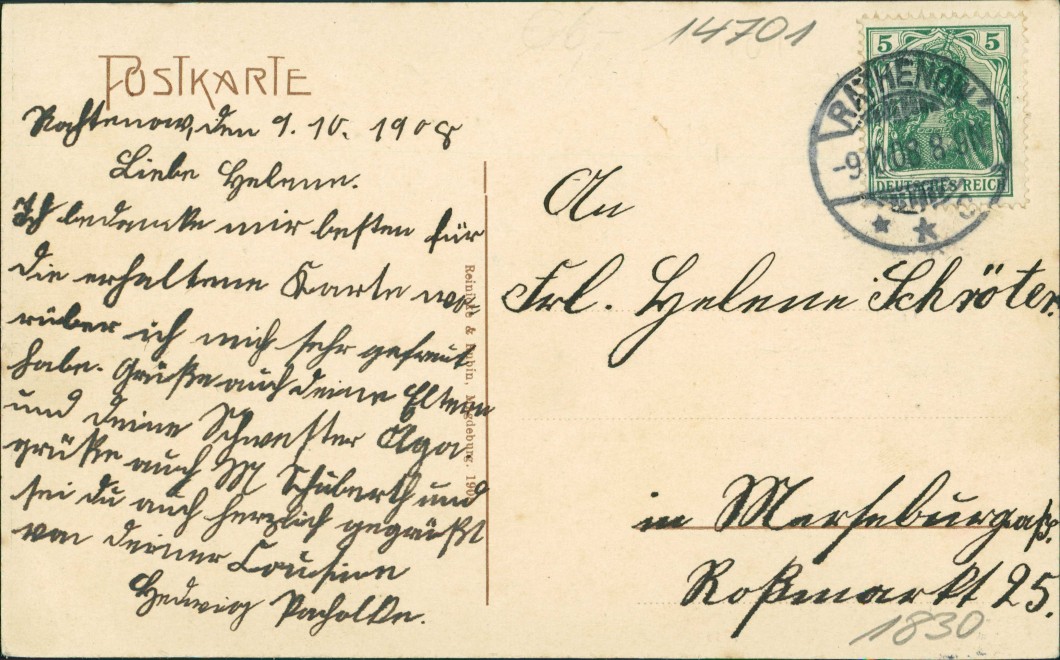 POSTKARTE
Rahtenow, den 9. 10. 1908
Liebe Helene.
Ich bedanke mir besten für
die erhaltene Karte wo-
rüber ich mich sehr gefreut
habe. Grüße auch deine Eltern
und deine Schwester Olga
grüße auch M Schuberth und
sei du auch herzlich gegrüßt
von deiner Cousine
Hedwig Pacholke.
Magdeburg. 190
14701
5 5
DEUTSCHES REICH
RATHENOW
-9 08 8-9N
An
Frl. Helene Schröter.
in Merseburg a/S.
Roßmarkt 25.
1830